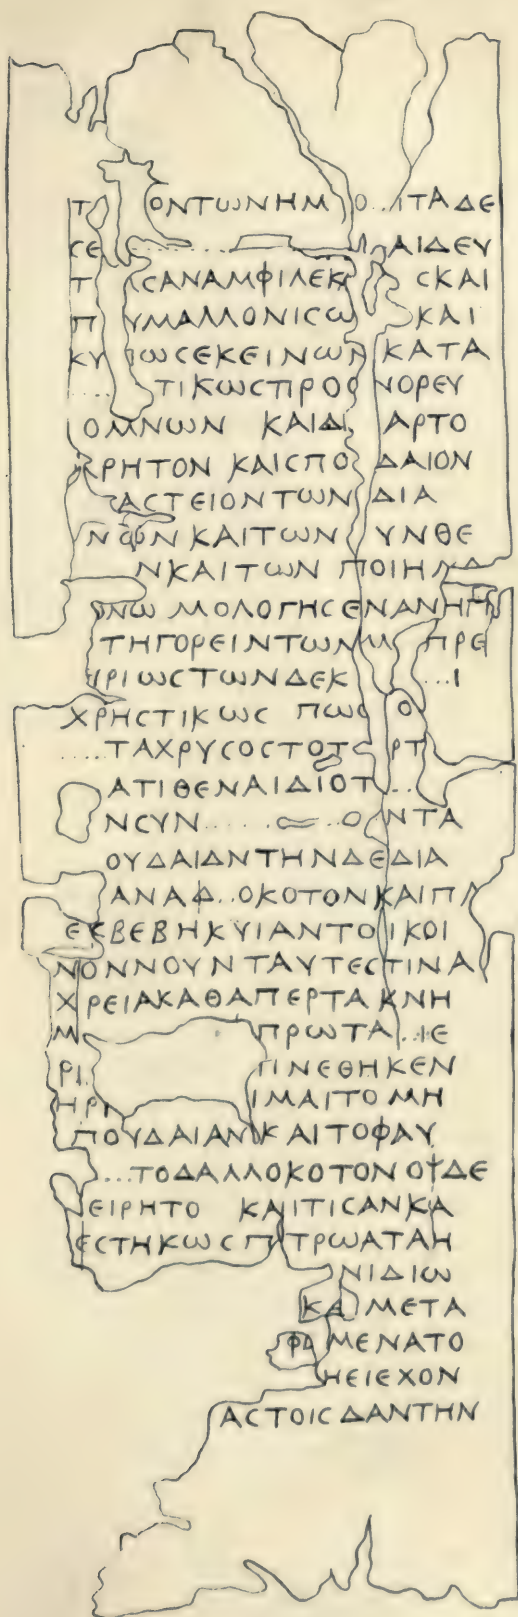 Τ ΟΝΤΩΝΗΜ Ο..ΙΤΑΔΕ
ϹΕ ..... ΑΙΔΕΥ
Τ ϹΑΝΑΜΦΙΛΕΚ ϹΚΑΙ
Π ΥΜΑΛΛΟΝΙϹΩ ΚΑΙ
ΚΥ ΩϹΕΚΕΙΝΩΝ ΚΑΤΑ
.... ΤΙΚΩϹΠΡΟϹ ΝΟΡΕΥ
ΟΜΝΩΝ ΚΑΙΔΙ ΑΡΤΟ
ΚΡΗΤΟΝ ΚΑΙϹΠΟ ΔΑΙΟΝ
ΑϹΤΕΙΟΝΤΩΝ ΔΙΑ
ΝΟΩΝΚΑΙΤΩΝ ΥΝΘΕ
ΝΚΑΙΤΩΝ ΠΟΙΗΜΑ
ΟΝΩ ΜΟΛΟΓΗϹΕΝΑΝΗΠ
ΤΗΓΟΡΕΙΝΤΩΝΜ ΠΡΕ
ΙΡΙΩϹΤΩΝΔΕΚ ...Ι
ΧΡΗϹΤΙΚΩϹ ΠΩϹ Ο
....ΤΑΧΡΥϹΟϹΤΟΤ ΡΤ
ΑΤΙΘΕΝΑΙΔΙΟΤ...
ΝϹΥΝ.... ΟΝΤΑ
ΟΥΔΑΙΔΝΤΗΝΔΕΔΙΑ
ΑΝΑΦ..ΟΚΟΤΟΝΚΑΙΠΛ
ΕΚΒΕΒΗΚΥΙΑΝΤΟ ΙΚΟΙ
ΝΟΝΝΟΥΝΤΑΥΤΕϹΤΙΝΑ
ΧΡΕΙΑΚΑΘΑΠΕΡΤΑ ΚΝΗ
Μ ΠΡΩΤΑ..ΙΕ
ΡΙ ΠΝΕΘΗΚΕΝ
ΗΡΙ ΙΜΑΙΤΟΜΗ
ΠΟΥΔΑΙΑΝ ΚΑΙΤΟΦΑΥ
...ΤΟΔΑΛΛΟΚΟΤΟΝΟΥΔΕ
ΕΙΡΗΤΟ ΚΑΙΤΙϹΑΝΚΑ
ΕϹΤΗΚΩϹ ΠΑΤΡΩΑΤΑΗ
ΝΙΔΙΩ
ΚΑ ΜΕΤΑ
ΦΑ ΜΕΝΑΤΟ
ΗΕΙΕΧΟΝ
ΑϹΤΟΙϹΔΑΝΤΗΝ